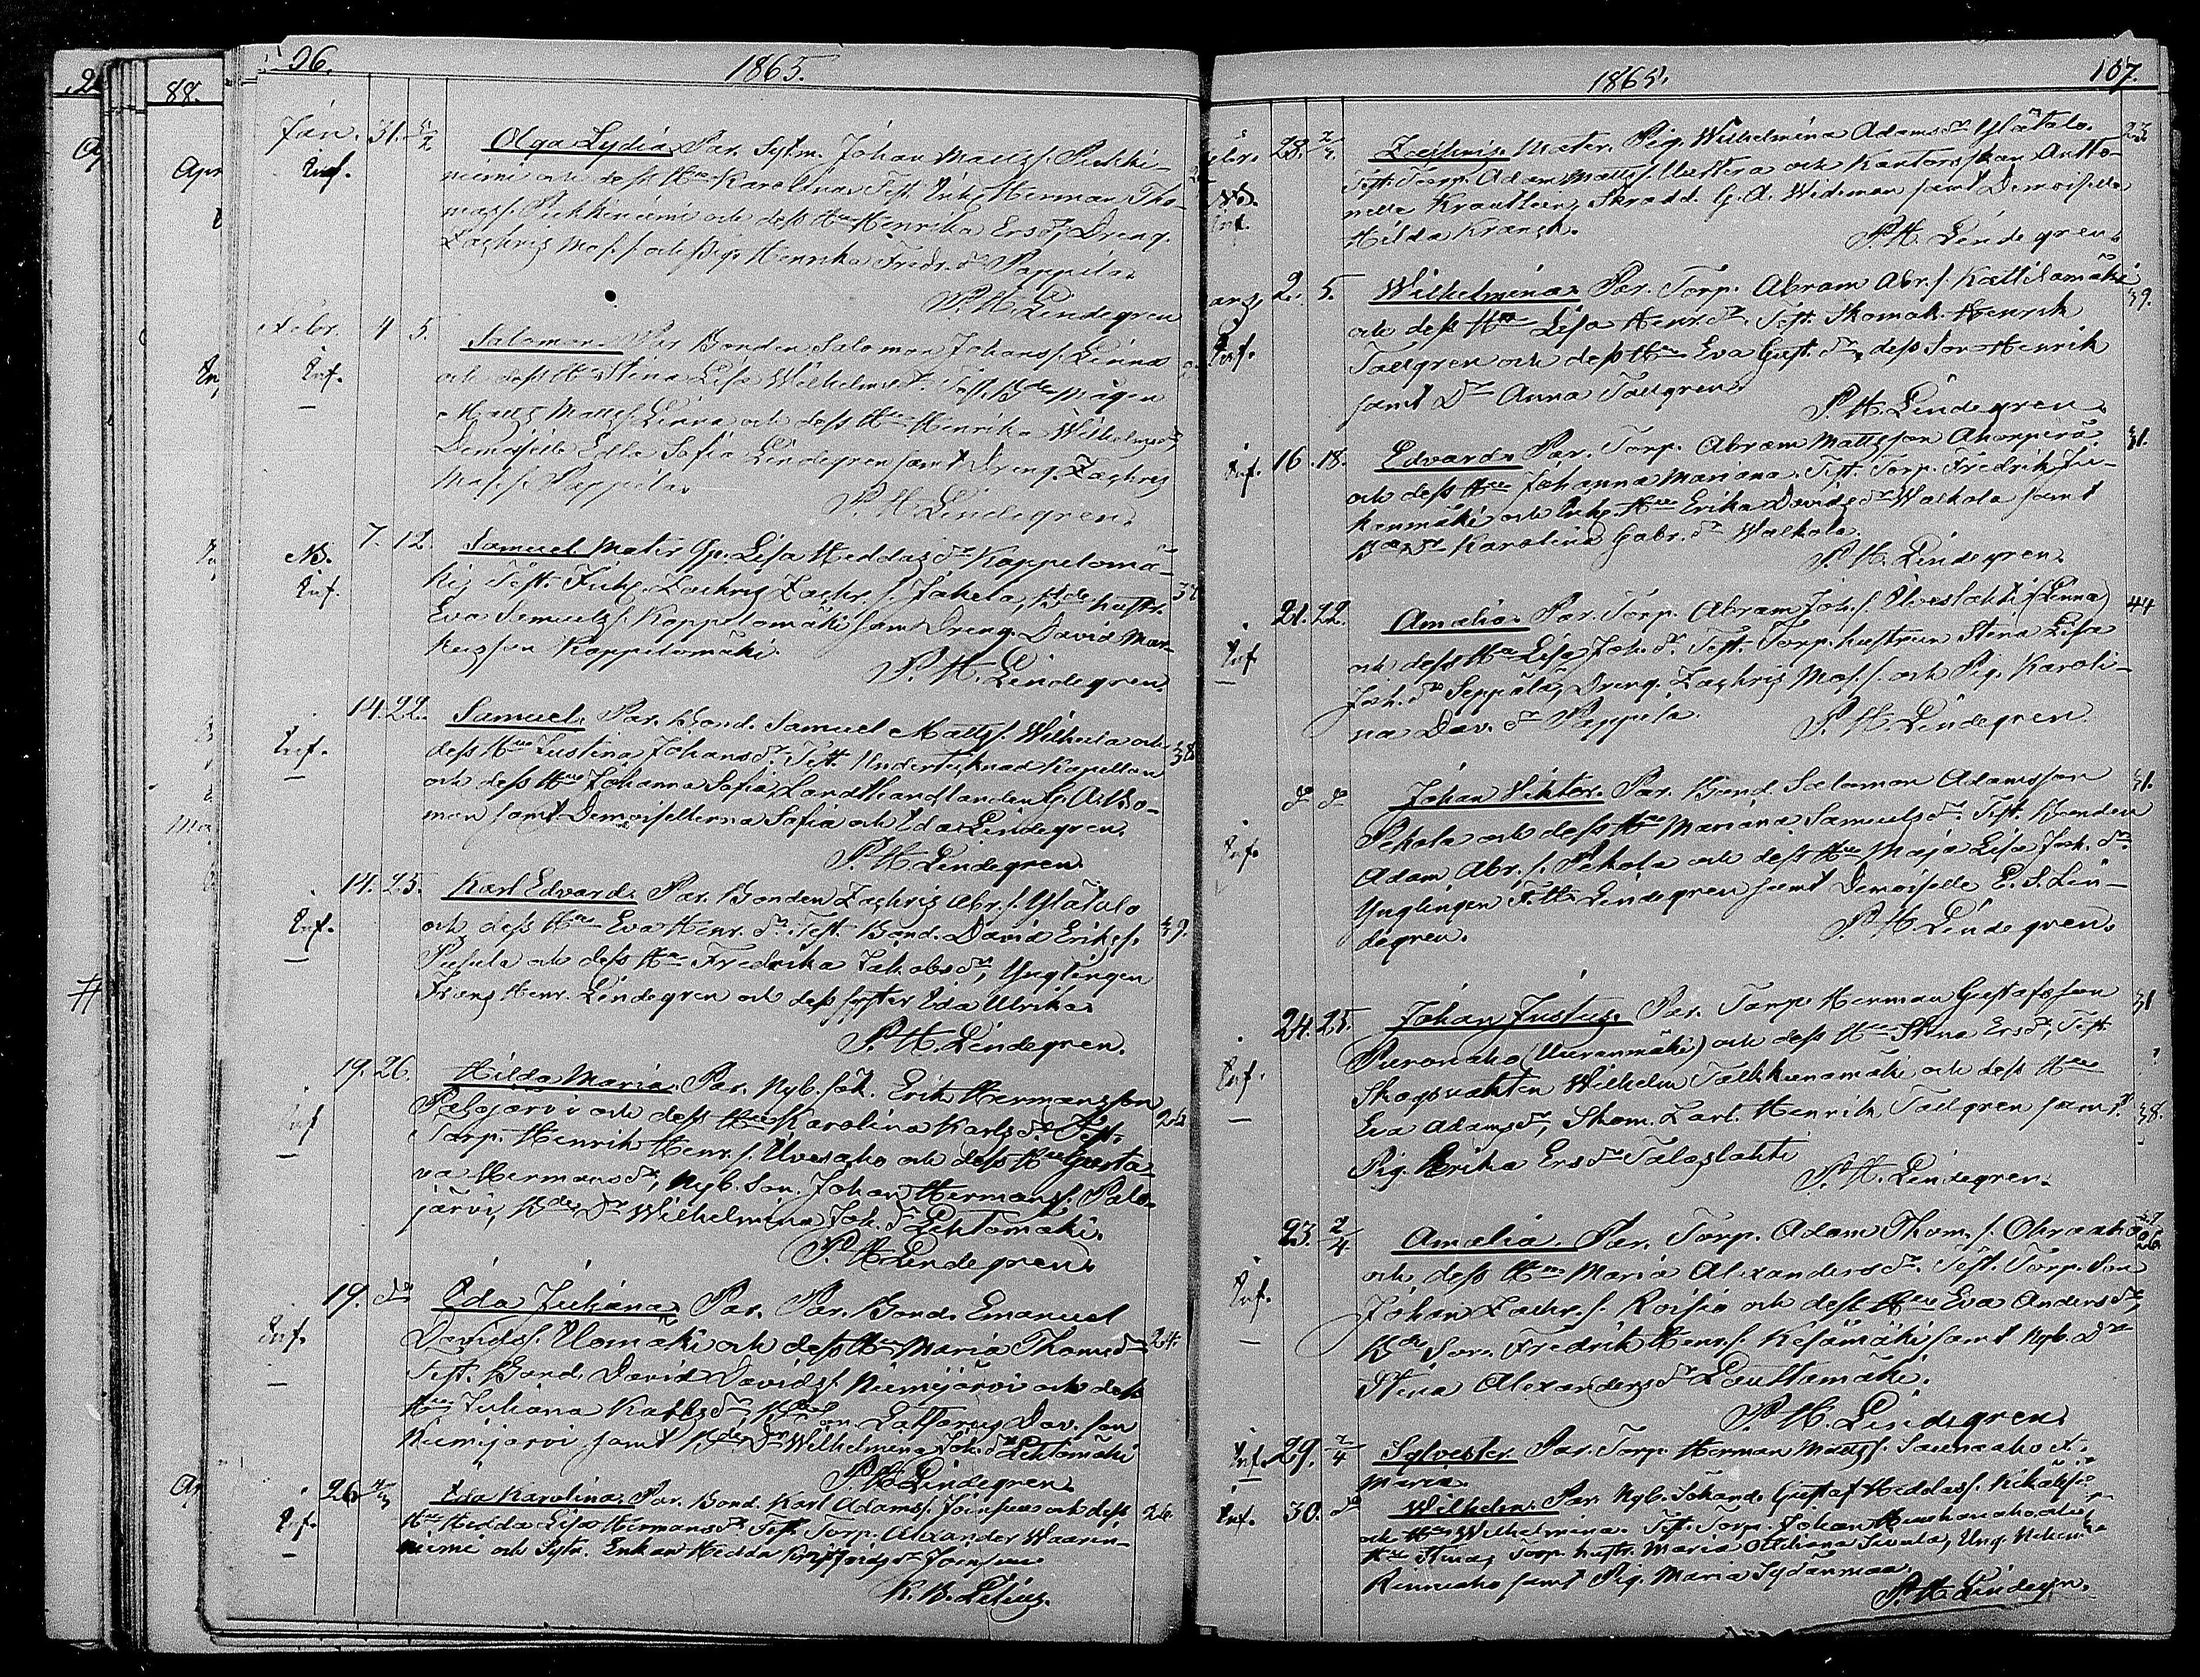 96.
1865.
Jan. 31. 5/2
Olga Lydia, Par. Sytm. Johan Mattss. Pukki-
Inf.
niemi och dess Hu Karolina, Test. Inh. Herman Tho-
mass. Pukkiniemi och dess Hu Henrika Ersdr, Dreng.
Zachris Mos. s. och Pig. Henrika Fredr. dr Pappila.
P. H. Lindegren
Febr. 4 5.
Salomon. Par Bonden Salomon Johanss. Linna
Inf.
och dess Hu Stina Lisa Wilhelmsdr. Test. Bde Mågen
Matts Mattss. Linna och dess Hu Henrika Wilhelmsdr,
Demoiselle Edla Sofia Lindegren samt Dreng. Zachris
Mos. s. Pappila.
P. H. Lindegren.
7. 12.
NB.
Samuel Mater Lisa Heddasdr Koppelomä-
Inf.
ki, Test. Zachris Zachr. s. Jakela, Bde hustr.
37
Eva Samuels. Koppelomäki samt Dreng. David Mar-
kusson Koppelomäki.
P. H. Lindegren.
14. 22.
Samuel, Par. Bond. Samuel Mattss. Wilkula och
Inf.
dess Hu Justina Johansdr. Test. Undertecknad Kapellan
38
och dess Hu Johanna Sofia, Landthandlanden G. A.
man samt Demoisellerna Sofia och Ida Lindegren.
P. H. Lindegren.
14. 25.
Karl Edvard, Par. Bonden Zachris Abr. s. Ylätalo
Inf.
och dess Hu Eva Henr. dr. Test. Bond. David Erikss.
39.
Pusula och dess Hu Fredrika Jakobsdr, Ynglingen
Frans Henr. Lindegren och dess syster Ida Ulrika.
P. H. Lindegren.
19. 26.
Hilda Maria. Par. Nyb. Joh. Erik Hermansson
Inf
Palojarvi och dess Hu Karolina Karlsdr. Test.
Torp. Henrik Henr. s. Uvesaho och dess Hu Gusta-
va Hermansdr, Nyb. Son. Johan Hermanss. Palo-
järvi, Bdes Dr Wilhelmina Joh. dr Lehtomäki.
P. H. Lindegren.
19. do
Ida Juliana, Par. Par. Bond. Emanuel
Inf.
Davidss. Ulomäki och dess Hu Maria Thomsdr
24.
Test. Bond. David Davidss. Niemijärvi och dess
Hu Juliana Karlsdr, Son Dav. son
Niemijarvi samt Bdes Dr Wilhelmina Joh. dr Lehtomäki
P. H. Lindegren.
26. 4/3
Ida Karolina, Par. Bond. Karl Adamss. och dess
26.
Inf.
Hu Hedda Lisa Hermansdr. Test. Torp. Alexander Waarin-
niemi och Sytn. Enkan Hedda
K. B.
107.
1865.
28. 2/4
Zachris. Mater. Pig. Wilhelmina Adamsdr Ylätalo.
23
Test. Torp. Adam Mattss. och Kantorskan Anto-
NB.
nette Krautlern, Skradd. G. A. Wideman samt Demoiselle
Inf.
Hilda
P. H. Lindegren.
2. 5.
Wilhelmina. Par. Torp. Abram Abr. s. Kattilamäki
39.
och dess Hu Lisa Henr. dr. Test. Skomak. Henrik
Inf.
Tallgren och dess Hu Eva Gust. dr, dess Son Henrik
samt Dr Anna Tallgren.
P. H. Lindegren.
Inf. 16. 18.
Edvard. Par. Torp. Abram Mattsson Ahonperä
31.
och dess Hu Johanna Mariana. Test. Torp. Fredrik
och Inh. Hu Erika Davidsdr Walkola samt
Karolina Gabr. dr Walkola.
P. H. Lindegren.
21. 22.
Amalia. Par. Torp. Abram Joh. s. (Linna)
44
Inf.
och dess Hu Lisa Joh. dr. Test. Torp. hustrun Stina Lisa
Joh. dr Seppälä, Dreng. Zachris Mos. s. och Pig. Karoli-
na Dav. dr Pappila.
P. H. Lindegren.
do do
Johan Viktor. Par. Bond. Salomon Adamsson
31.
Inf.
Pekola och dess Hu Mariana Samuelsdr. Test. Bonden
Adam Abr. s. Pekola och dess Hu Maja Lisa Joh. dr
Ynglingen F. H. Lindegren samt Demoiselle E. S. Lin-
degren.
P. H. Lindegren.
24. 25.
Johan Justus. Par. Torp. Herman Gustafsson
31
Inf.
Puronaho (Uuranmäki) och dess Hu Stina Ersdr, Test.
Skogvakten Wilhelm Talkkunamäki och dess Hu
Eva Adamsdr, Skom. Lärl. Henrik Tallgren samt
38.
Pig. Erika Ersdr
P. H. Lindegren.
23. 2/4
Amalia. Par. Torp. Adam Thom. s. Ohraaho
Inf.
och dess Hu Maria Alexandersdr. Test. Torp. Son
Johan Zachr. s. Roisio och dess Hu Eva Andersdr,
Bde Son Fredrik Henr. s. Kesämäki samt Nyb. Dr
Stina Alexandersdr Lauttamäki.
P. H. Lindegren.
Inf. 29. 2/4
Sylvester. Par. Torp. Herman Mattss. Saunaaho
Maria
Inf. 30. do
Wilhelm. Par. Nyb. Johand. Gustaf Heddass.
och Hu Wilhelmina. Test. Torp. Johan och
Hu Stina, Torp. hustr. Maria Ottiliana Sivula, Yng.
Rinneaho samt Pig. Maria Sydänmaa.
P. H. Lindegren.